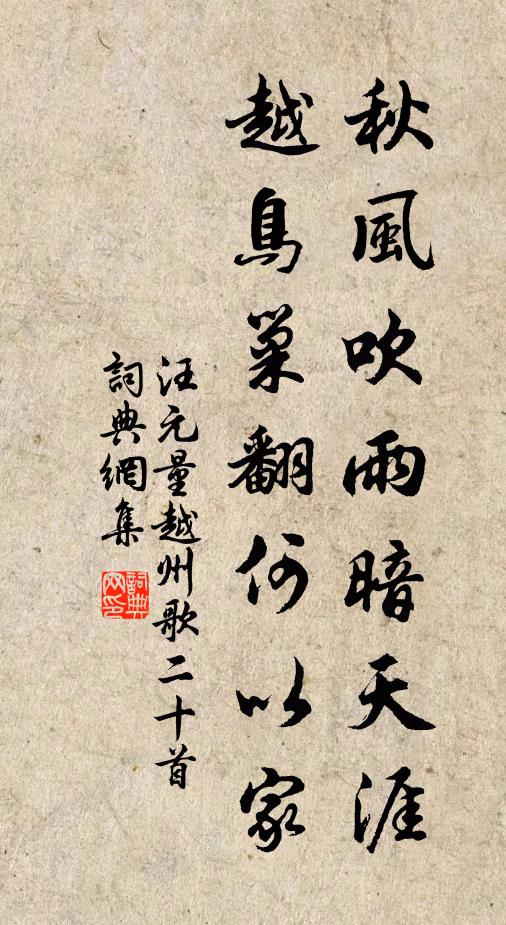 秋風吹雨暗天涯
越鳥巢翻何以家
汪元量越州歌二十首
詞典網集
詞典网印